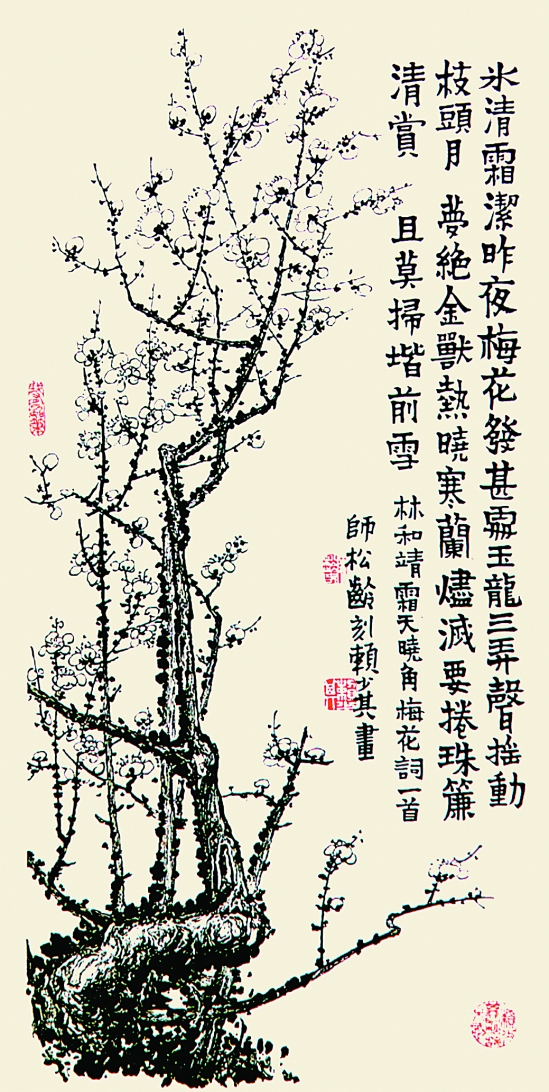 氷清霜潔昨夜梅花發甚處玉龍三弄聲揺動
枝頭月 夢絶金獸熱曉寒蘭燼滅要捲珠簾
清賞 且莫掃堦前雪 林和靖霜天曉角梅花詞一首
師松齡刻賴少其畫